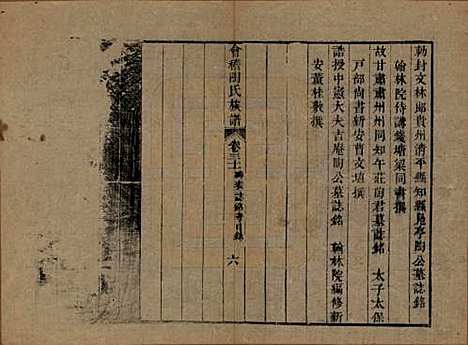 勅封文林郎貴州清平縣知縣晃亭陶公墓誌銘
翰林院侍講錢塘梁同書撰
故甘肅肅州州同知午莊陶君墓誌銘 太子太保
戶部尚書新安曹文埴撰
誥授中憲大夫吉庵陶公墓誌銘 翰林院編修新
安董桂敷撰
會稽陶氏族譜 卷三十 傳家誌銘等目錄 六